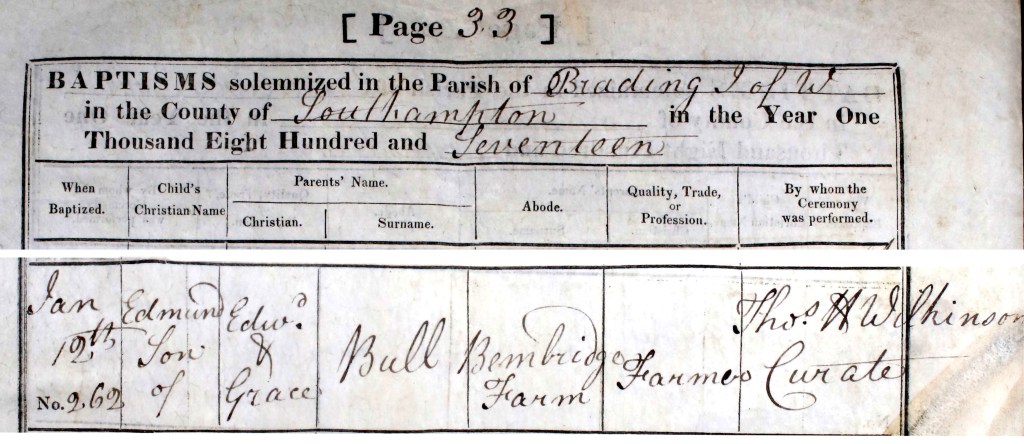 [ Page 33 ]
BAPTISMS solemnized in the Parish of Brading I of W
in the County of Southampton in the Year One
Thousand Eight Hundred and Seventeen
When Baptized.
Child's Christian Name
Parents' Name.
Christian.
Surname.
Abode.
Quality, Trade, or Profession.
By whom the Ceremony was performed.
Jan
12th
No. 262
Edmund
Son
of
Edwd
&
Grace
Bull
Bembridge
Farm
Farmer
Thos H Wilkinson
Curate